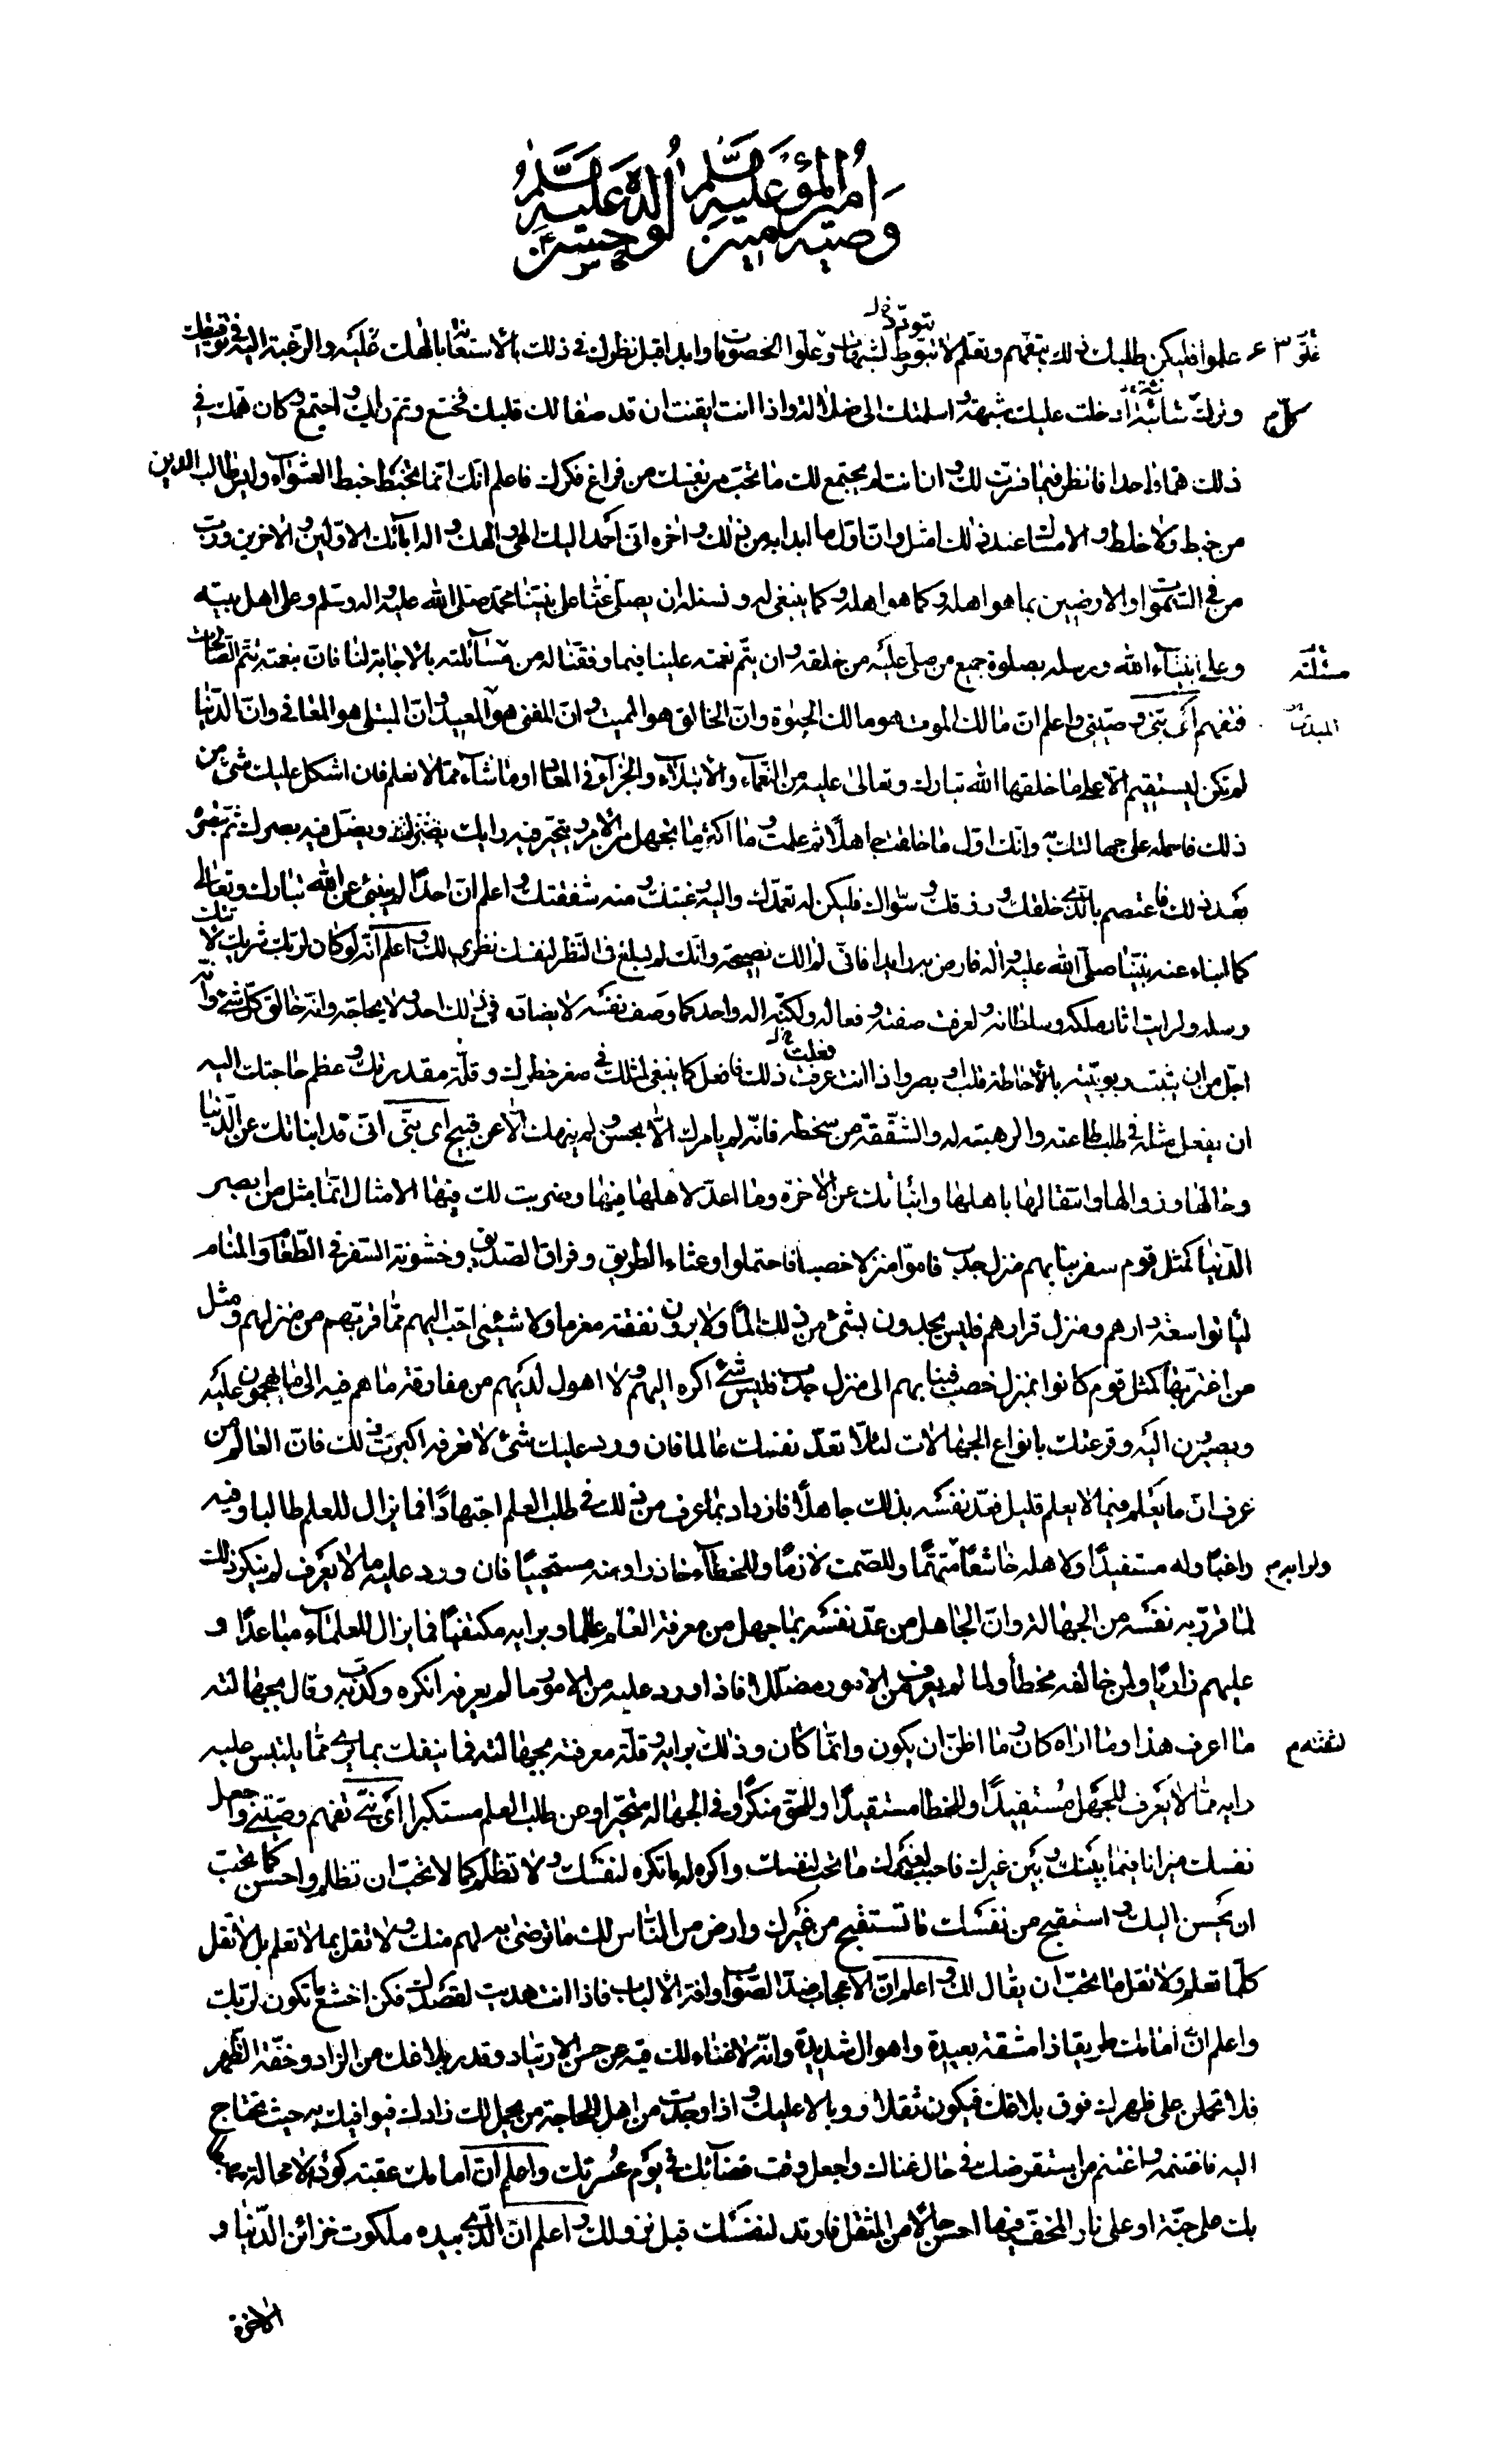 وصيه امير المؤمنين عليه السلم لولده حسن عليه السلم
علموا فليكن طلبك ذلك بتفهم وتعلم لا بتورط الشبهات وعلو الخصومات وابدا قبل نظرك في ذلك بالاستعانة بالهك عليه والرغبة اليه في توفيقك
وترك شائبة ادخلت عليك شبهة او اسلمتك الى ضلالة واذا انت ايقنت ان قد صفا لك قلبك فخشع وتم رايك واجتمع وكان همك في
ذلك هما واحدا فانظر فيما فسرت لك وان انت لم يجتمع لك ما تحب من نفسك من فراغ فكرك فاعلم انك انما تخبط خبط العشواء وليس طالب الدين
من خبط ولا خلط والامساك عند ذلك امثل وان اول ما ابدابه من ذلك واخره اني احمد اليك الهي والهك واله ابائك الاولين والاخرين ورب
من في السموات والارضين بما هو اهله وكما هو اهله وكما ينبغي له ونسئله ان يصلي عنا على نبينا محمد صلى الله عليه واله وسلم وعلى اهل بيته
وعلى انبياء الله ورسله بصلوة جميع من صلى عليه من خلقه وان يتم نعمته علينا فيما وفقنا له من مسائلته بالاجابة لنا فان بنعمته تتم الصالحات
مسئلته
فتفهم اي بني وصيتي واعلم ان مالك الموت هو مالك الحيوة وان الخالق هو المميت وان المفني هو المعيد وان المبتلي هو المعافي وان الدنيا
لم تكن ليستقيم الا على ما خلقها الله تبارك وتعالى عليه من النعماء والابتلاء والجزاء في المعاد او ما شاء مما لا نعلم فان اشكل عليك شئ من
ذلك فاحمله على جهالتك به وانك اول ما خلقت جاهلا ثم علمت وما اكثر ما تجهل من الامر ويتحير فيه رايك ويضل فيه بصرك ثم تبصر
بعد ذلك فاعتصم بالذي خلقك ورزقك وسواك فليكن له تعمدك واليه رغبتك ومنه شفقتك واعلم ان احدا لم ينبئ عن الله تبارك وتعالى
كما انباء عنه نبينا صلى الله عليه واله فارض به رايدا فاني لم الك نصيحة وانك لم تبلغ في النظر لنفسك نظري لك واعلم انه لو كان لربك شريك لاتتك
رسله ولرايت اثار ملكه وسلطانه ولعرفت صفته وفعاله ولكنه اله واحد كما وصف نفسه لا يضاده في ذلك احد ولا يحاجه وانه خالق كل شئ وانه
اجل من ان يثبت ربوبيته بالاحاطة قلب او بصر واذا انت عرفت ذلك فافعل كما ينبغي لمثلك في صغر خطرك وقلة مقدرتك وعظم حاجتك اليه
ان يفعل مثله في طلب طاعته والرهبة له والشفقة من سخطه فانه لم يامرك الا بحسن ولم ينهك الا عن قبيح اي بني اني قد انباتك عن الدنيا
وحالها وزوالها وانتقالها باهلها وانباتك عن الاخرة وما اعد لاهلها فيها وضربت لك فيها الامثال انما مثل من ابصر
الدنيا كمثل قوم سفر نبا بهم منزل جدب فاموا منزلا خصبا فاحتملوا وعثاء الطريق وفراق الصديق وخشونة السفر في الطعام والمنام
ليأتوا سعة دارهم ومنزل قرارهم فليس يجدون لشئ من ذلك الما ولا يرون نفقة مغرما ولا شئ احب اليهم مما قربهم من منزلهم ومثل
من اغتر بها كمثل قوم كانوا بمنزل خصب فنبا بهم الى منزل جدب فليس شئ اكره اليهم ولا اهول لديهم من مفارقة ما هم فيه الى ما يهجمون عليه
ويصيرن اليه وقرعتك بانواع الجهالات لئلا تعد نفسك عالما فان ورد عليك شئ لا تعرفه اكبرت ذلك فان العالم من
عرف ان ما يعلم فيما لا يعلم قليل فعد نفسه بذلك جاهلا فازداد بما عرف من ذلك في طلب العلم اجتهادا فما يزال للعلم طالبا وفيه
راغبا وله مستفيدا ولاهله خاشعا متهما وللصمت لازما وللخطاء حاذرا ومنه مستحييا فان ورد عليه ما لا يعرف لم ينكر ذلك
لما قرر به نفسه من الجهالة وان الجاهل من عد نفسه بما جهل من معرفة العلم عالما وبرايه مكتفيا فما يزال للعلماء مباعدا و
عليهم زاريا ولمن خالفه مخطأ ولما لم يعرف من الامور مضللا فاذا ورد عليه من الامور ما لم يعرفه انكره وكذب به وقال بجهالته
ما اعرف هذا وما اراه كان وما اظن ان يكون وانما كان وذلك برايه وقلة معرفته بجهالته فما ينفك بما يرى مما يلتبس عليه
رايه مما لا يعرف للجهل مستفيدا وللخطا مستفيدا وللحق منكرا وفي الجهالة متحيرا وعن طلب العلم مستكبرا اي بني تفهم وصيتي واجعل
نفسك ميزانا فيما بينك وبين غيرك فاحبب لغيرك ما تحب لنفسك واكره له ما تكره لنفسك ولا تظلم كما لا تحب ان تظلم واحسن كما تحب
ان يحسن اليك واستقبح من نفسك ما تستقبح من غيرك وارض من الناس لك ما ترضى به لهم منك ولا تقل بما لا تعلم بل لا تقل
كلما تعلم ولا تقل ما لا تحب ان يقال لك واعلم ان الاعجاب ضد الصواب وافة الالباب فاذا انت هديت لقصدك فكن اخشع ما تكون لربك
واعلم ان امامك طريقا ذا مشقة بعيدة واهوال شديدة وانه لا غناء لك فيه عن حسن الارتياد وقدر بلاغك من الزاد وخفة الظهر
فلا تحملن على ظهرك فوق بلاغك فيكون ثقلا ووبالا عليك واذا وجدت من اهل الحاجة من يحمل لك زادك فيوافيك به حيث تحتاج
اليه فاغتنمه واغتنم من استقرضك في حال غناك واجعل وقت قضائك في يوم عسرتك واعلم ان امامك عقبة كؤدا لا محالة
بك على جنة او على نار المخف فيها احسن حالا من المثقل فارتد لنفسك قبل نزولك واعلم ان الذي بيده ملكوت خزائن الدنيا و
الاخرة